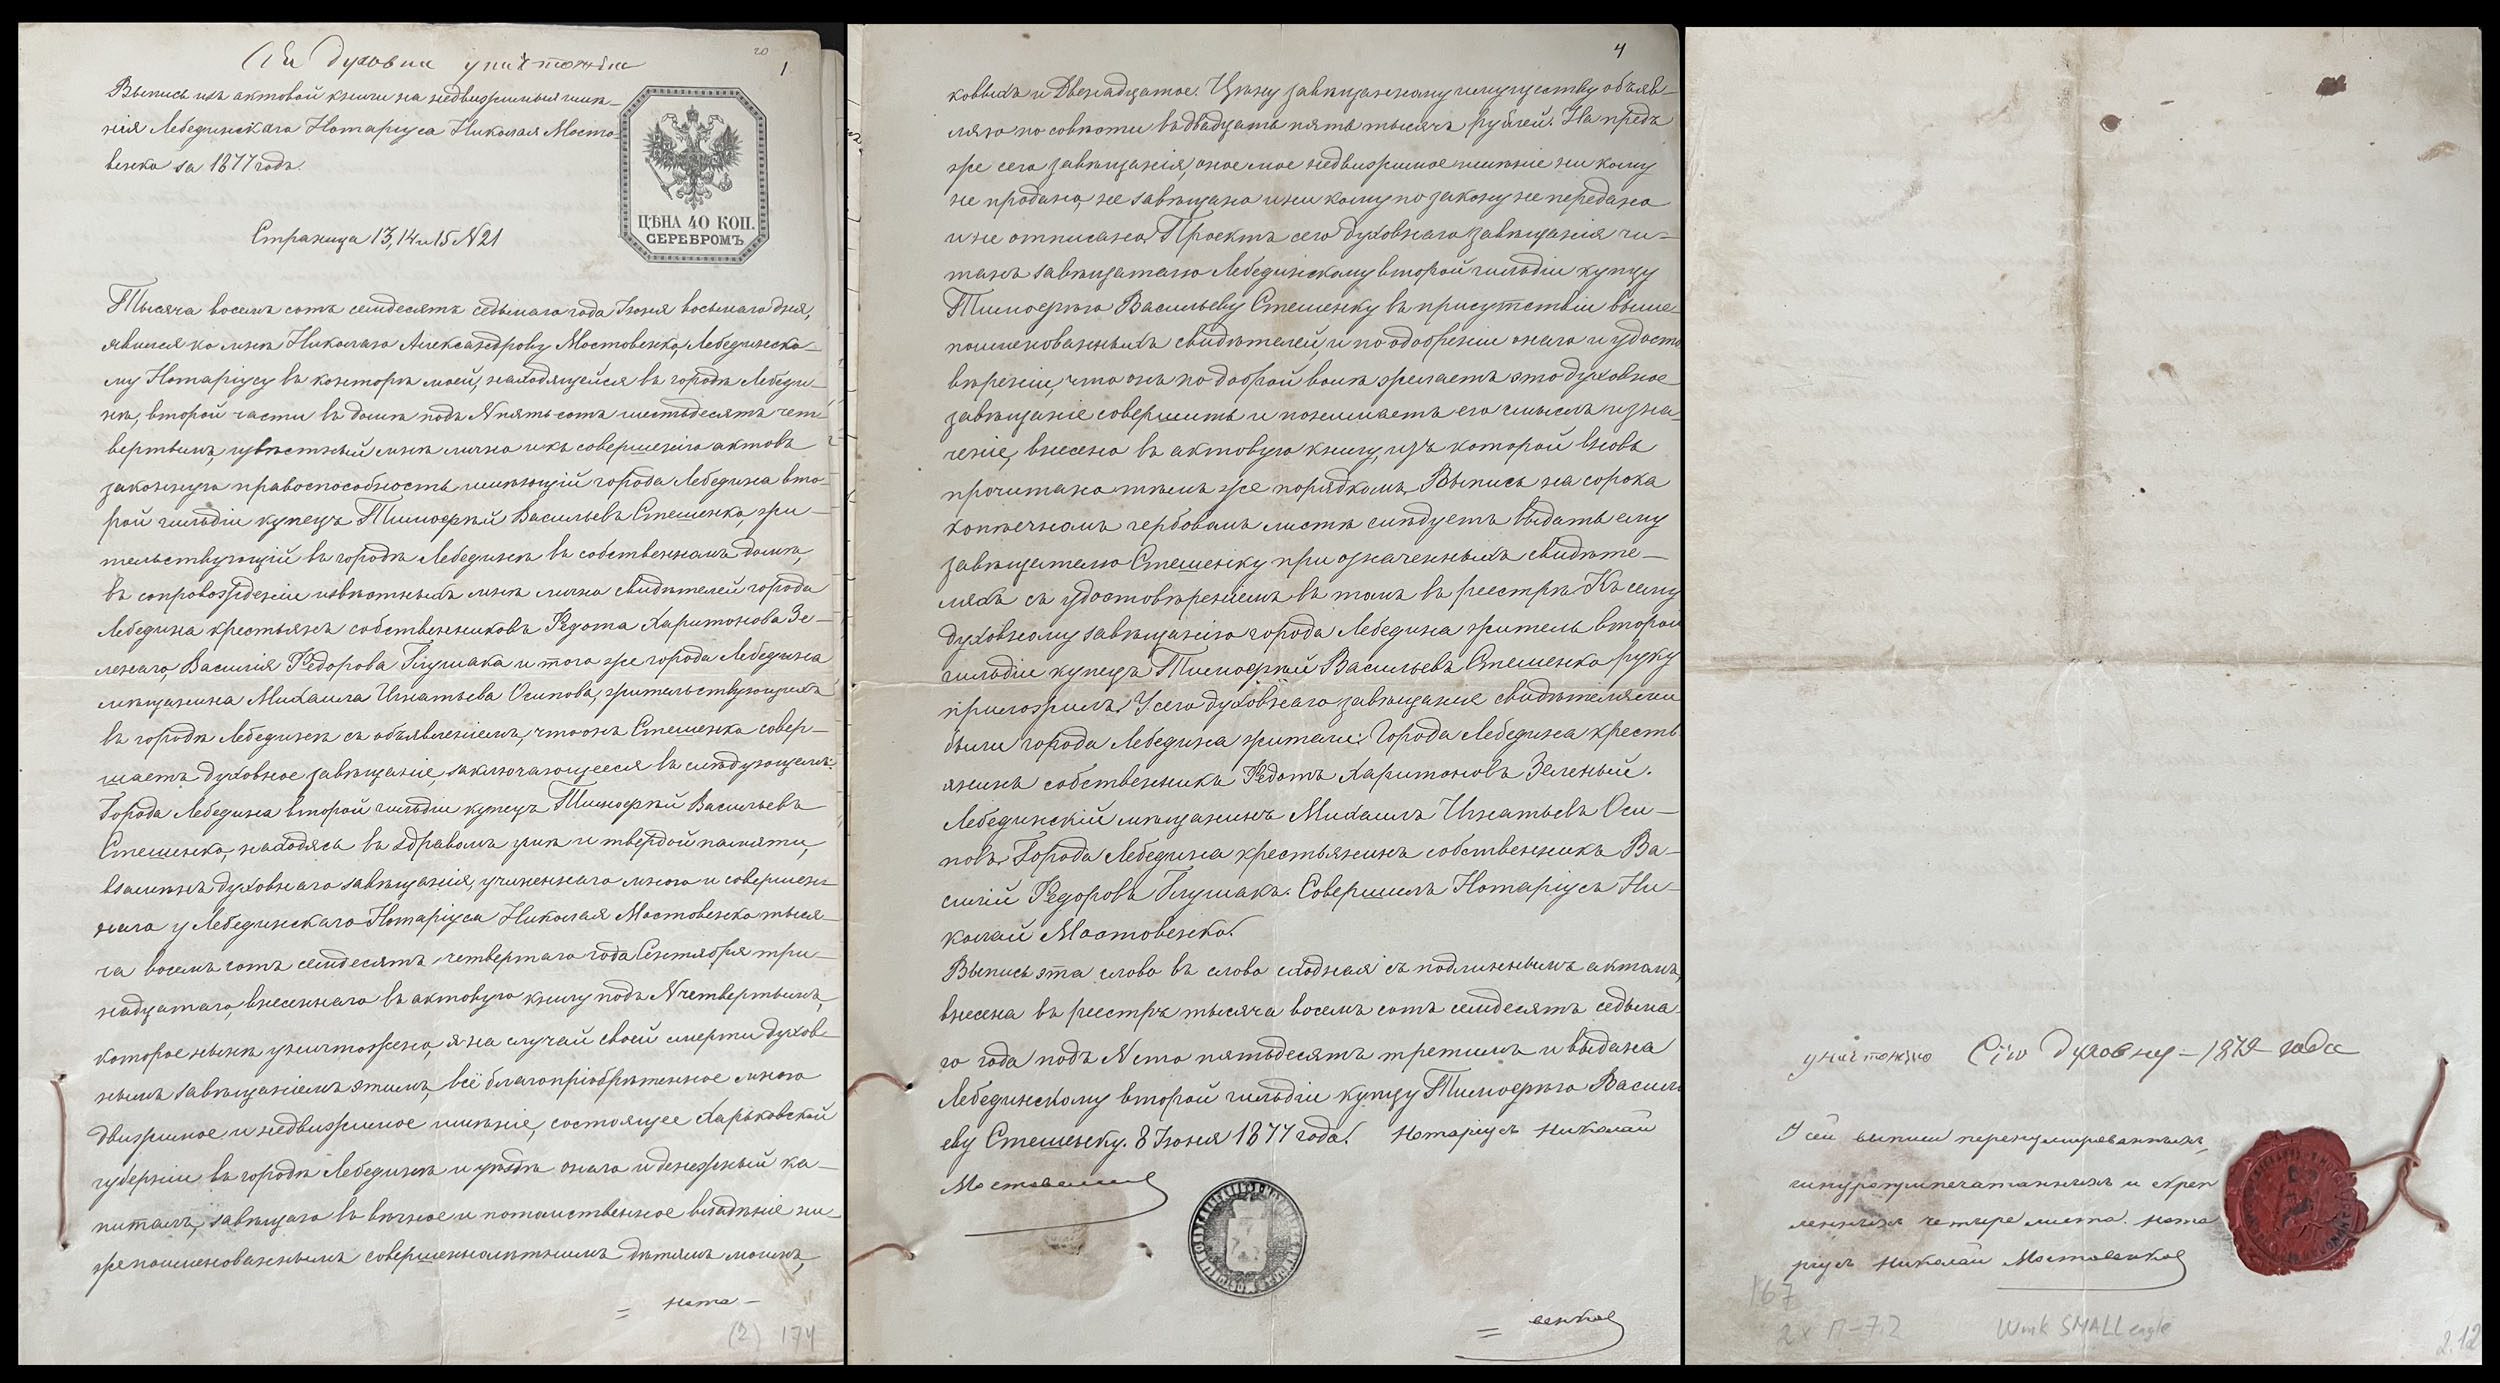 Сія духовна уничтожена
20
1
Выпись изъ актовой книги на недвижимыя имѣ-
нія Лебединскаго Нотаріуса Николая Мосто-
венко за 1877 годъ.
ЦѢНА 40 КОП.
СЕРЕБРОМЪ
Страница 13, 14 и 15 № 21
Тысяча восемь сотъ семдесятъ седьмаго года Іюня восьмаго дня,
явился ко мнѣ Николаю Александрову Мостовенко, Лебединско-
му Нотаріусу въ конторѣ моей, находящейся въ городѣ Лебеди-
нѣ, второй части въ домѣ подъ № пятьсотъ шестьдесятъ чет-
вертымъ, извѣстный мнѣ лично и къ совершенію актовъ
законную правоспособность имѣющій города Лебедина вто-
рой гильдіи купецъ Тимофѣй Васильевъ Стешенко, жи-
тельствующій въ городѣ Лебединѣ въ собственномъ домѣ,
въ сопровожденіи извѣстныхъ мнѣ лично свидѣтелей города
Лебедина крестьянъ собственниковъ Федота Харитонова Зе-
ленаго, Василія Федорова Глушака и того же города Лебедина
мѣщанина Михаила Игнатьева Осипова, жительствующихъ
въ городѣ Лебединѣ съ объявленіемъ, что онъ Стешенко совер-
шаетъ духовное завѣщаніе, заключающееся въ слѣдующемъ:
Города Лебедина второй гильдіи купецъ Тимофѣй Васильевъ
Стешенко, находясь въ здравомъ умѣ и твердой памяти,
взамѣнъ духовнаго завѣщанія, учиненнаго мною и совершен-
наго у Лебединскаго Нотаріуса Николая Мостовенко тыся-
ча восемь сотъ семдесятъ четвертаго года Сентября три-
надцатаго, внесеннаго въ актовую книгу подъ № четвертымъ,
которое нынѣ уничтожено, я на случай своей смерти духов-
нымъ завѣщаніемъ этимъ, всё благопріобрѣтенное мною
движимое и недвижимое имѣніе, состоящее Харьковской
губерніи въ городѣ Лебединѣ и уѣздѣ онаго и денежный ка-
питалъ, завѣщаю въ вѣчное и потомственное владѣніе ни-
жепоименованнымъ совершеннолѣтнимъ дѣтямъ моимъ,
= нота-
(2) 174
4
ковыхъ и Двенадцатое. Цѣну завѣщанному имуществу объяв-
ляю по совѣсти въ двадцать пять тысячъ рублей. На предъ
же сего завѣщанія, оное мое недвижимое имѣніе ни кому
не продано, не завѣщано и ни кому по закону не передано
и не отписано. Проектъ сего духовнаго завѣщанія чи-
танъ завѣщателю Лебединскому второй гильдіи купцу
Тимофѣю Васильеву Стешенку въ присутствіи выше-
поименованныхъ свидѣтелей, и по одобреніи онаго и удосто
вѣреніи, что онъ по доброй волѣ желаетъ это духовное
завѣщаніе совершить и понимаетъ его смыслъ и зна-
ченіе, внесено въ актовую книгу, изъ которой вновь
прочитано тѣмъ же порядкомъ. Выпись на сорока
копѣечномъ гербовомъ листѣ слѣдуетъ выдать ему
завѣщателю Стешенку при означенныхъ свидѣте-
ляхъ съ удостовѣреніемъ въ томъ въ реестрѣ. Къ сему
духовному завѣщанію города Лебедина житель второй
гильдіи купецъ Тимофѣй Васильевъ Стешенко руку
приложилъ. У сего духовнаго завѣщанія свидѣтелями
были города Лебедина жители: Города Лебедина кресть
янинъ собственникъ Федотъ Харитоновъ Зеленый.
Лебединскій мѣщанинъ Михаилъ Игнатьевъ Оси-
повъ. Города Лебедина крестьянинъ собственникъ Ва-
силій Федоровъ Глушакъ. Совершилъ Нотаріусъ Ни-
колай Мостовенко.
Выпись эта слово въ слово сходная съ подлиннымъ актомъ,
внесена въ реестръ тысяча восемь сотъ семдесятъ седьма-
го года подъ № сто пятьдесятъ третимъ и выдана
Лебединскому второй гильдіи купцу Тимофѣю Василь
еву Стешенку. 8 Іюня 1877 года. Нотаріусъ Николай
Мостовенко
= венко
уничтожую Сію Духовну - 1879 года
У сей выписи перенумерованныхъ,
шнуроприпечатанныхъ и скреп
ленныхъ четыре листа. Нота
ріусъ Николай Мостовенко
167
2x П-7.2
Wmk SMALL eagle
2.12